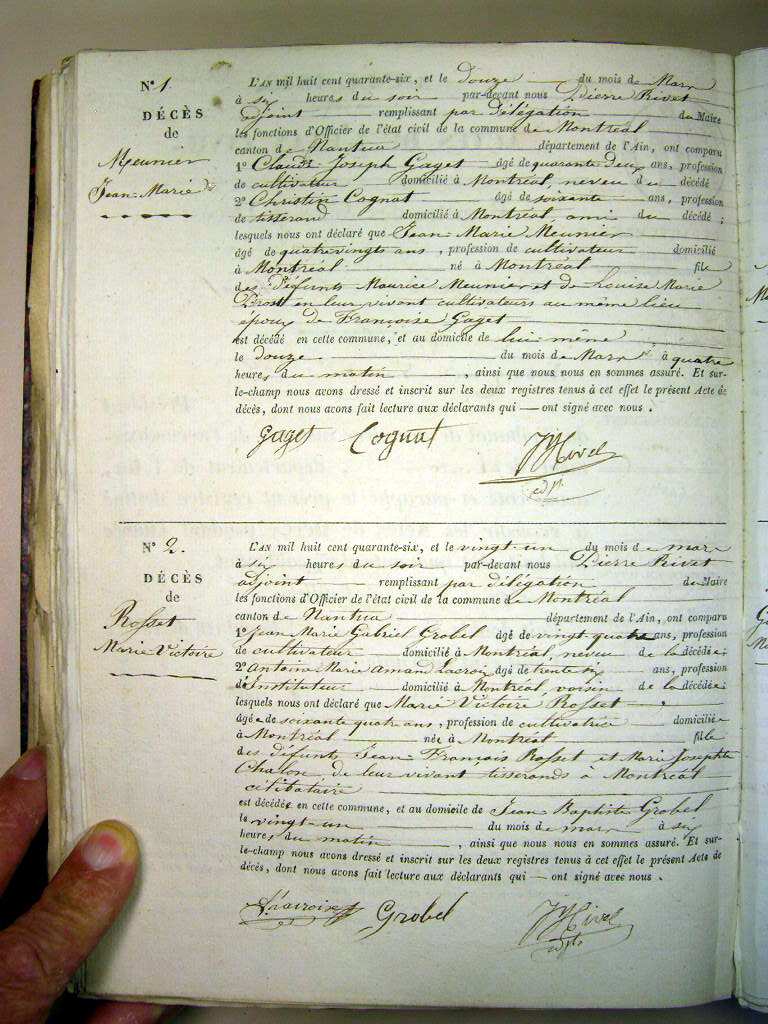 N° 1.
DÉCÈS
de
Meunier
Jean-Marie
L'AN mil huit cent quarante-six, et le douze du mois de Mars
à six heures du soir par-devant nous Pierre Rivet
adjoint remplissant par délégation du Maire
les fonctions d'Officier de l'état civil de la commune de Montréal
canton de Nantua département de l'Ain, ont comparu
1° Claude Joseph Gaget âgé de quarante deux ans, profession
de cultivateur domicilié à Montréal, neveu du décédé
2° Christin Cognat âgé de soixante ans, profession
de tisserand domicilié à Montréal, ami du décédé ;
lesquels nous ont déclaré que Jean Marie Meunier
âgé de quatrevingts ans, profession de cultivateur domicilié
à Montréal né à Montréal fils
des défunts Maurice Meunier et de Louise Marie
Prost en leur vivant cultivateurs au même lieu
époux de Françoise Gaget
est décédé en cette commune, et au domicile de lui-même
le douze du mois de Mars à quatre
heures du matin , ainsi que nous nous en sommes assuré. Et sur-
le-champ nous avons dressé et inscrit sur les deux registres tenus à cet effet le présent Acte de
décès, dont nous avons fait lecture aux déclarants qui — ont signé avec nous .
Gaget Cognat Rivet
adjt.
N° 2.
DÉCÈS
de
Rosset
Marie Victoire
L'AN mil huit cent quarante-six, et le vingt-un du mois de mars
à six heures du soir par-devant nous Pierre Rivet
adjoint remplissant par délégation du Maire
les fonctions d'Officier de l'état civil de la commune de Montréal
canton de Nantua département de l'Ain, ont comparu
1° Jean Marie Gabriel Grobel âgé de vingt quatre ans, profession
de cultivateur domicilié à Montréal, neveu de la décédée
2° Antoine Marie Amand Lacroix âgé de trente six ans, profession
d'Instituteur domicilié à Montréal, voisin de la décédée
lesquels nous ont déclaré que Marie Victoire Rosset ,
âgée de soixante quatre ans, profession de cultivatrice domiciliée
à Montréal née à Montréal fille
des défunts Jean-François Rosset et Marie Josephte
Chalon, de leur vivant tisserands à Montréal
célibataire
est décédée en cette commune, et au domicile de Jean Baptiste Grobel
le vingt-un du mois de mars à six
heures du matin , ainsi que nous nous en sommes assuré. Et sur-
le-champ nous avons dressé et inscrit sur les deux registres tenus à cet effet le présent Acte de
décès, dont nous avons fait lecture aux déclarants qui — ont signé avec nous .
Grobel Rivet
adjt